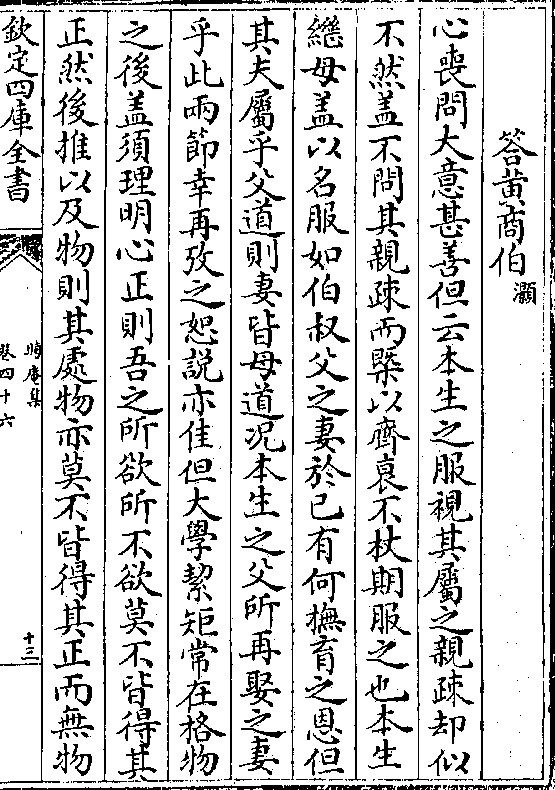 答黄商伯灝
心喪問大意甚善但云本生之服視其屬之親疎却似
不然盖不問其親疎而槩以齊衰不杖期服之也本生
繼母盖以名服如伯叔父之妻於已有何撫育之恩但
其夫屬乎父道則妻皆母道况本生之父所再娶之妻
乎此兩節幸再攷之恕説亦佳但大學絜矩常在格物
之後盖須理明心正則吾之所欲所不欲莫不皆得其
正然後推以及物則其處物亦莫不皆得其正而無物
欽定四庫全書
晦庵集
卷四十六
十三